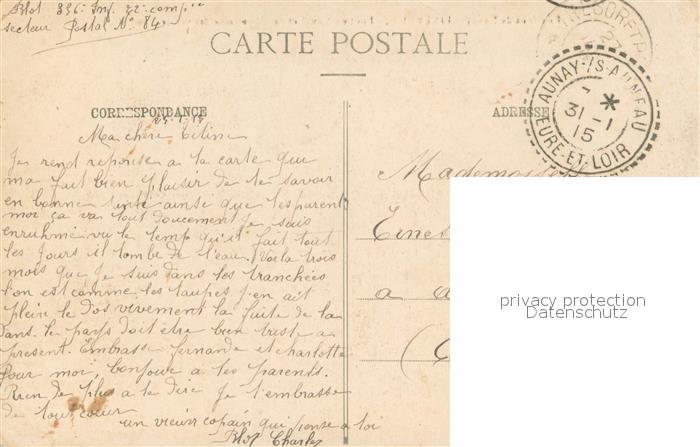 Blot 356 Inf. 22 comp
secteur Postal N° 84
CARTE POSTALE
CORRESPONDANCE
ADRESSE
AUNAY-/S-AUNEAU
31-1
15
EURE-ET-LOIR
Ma chère Céline
Je rend reponse a la carte que
ma fait bien plaisir de te savoir
en bonne santé ainsi que tes parent
moi ça va tout doucement Je suis
enruhmé vu le temp qu'il fait tout
les jours il tombe de l'eau. Voila trois
mois que Je suis dans les tranchées
l'on est comme les taupes J'en ait
plein le dos vivement la fuite de la
dans. le pays doit être bien triste a
present. Embrasse fernande et charlotte
Pour moi, bonjour a tes parents.
Rien de plus a te dire Je t'embrasse
de tout coeur
un vieux copain qui pense a toi
Blot Charles
Mademoiselle
Ernes
a a
(
privacy protection
Datenschutz